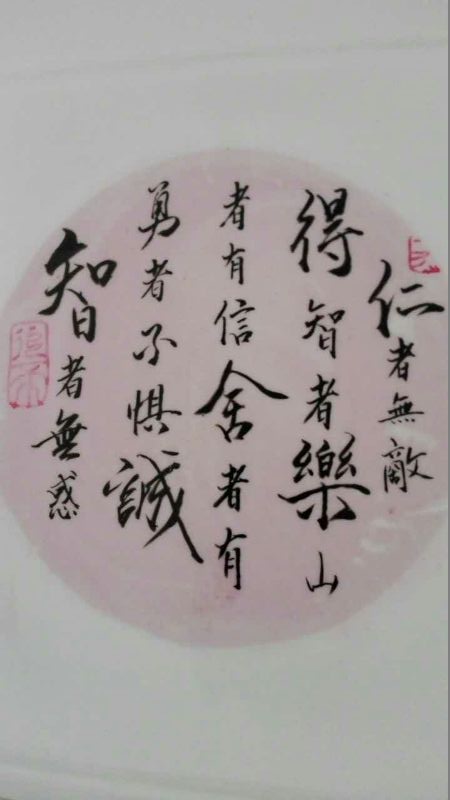 仁者無敵
得智者樂山
者有信舍者有
勇者不惧誠
智者無惑